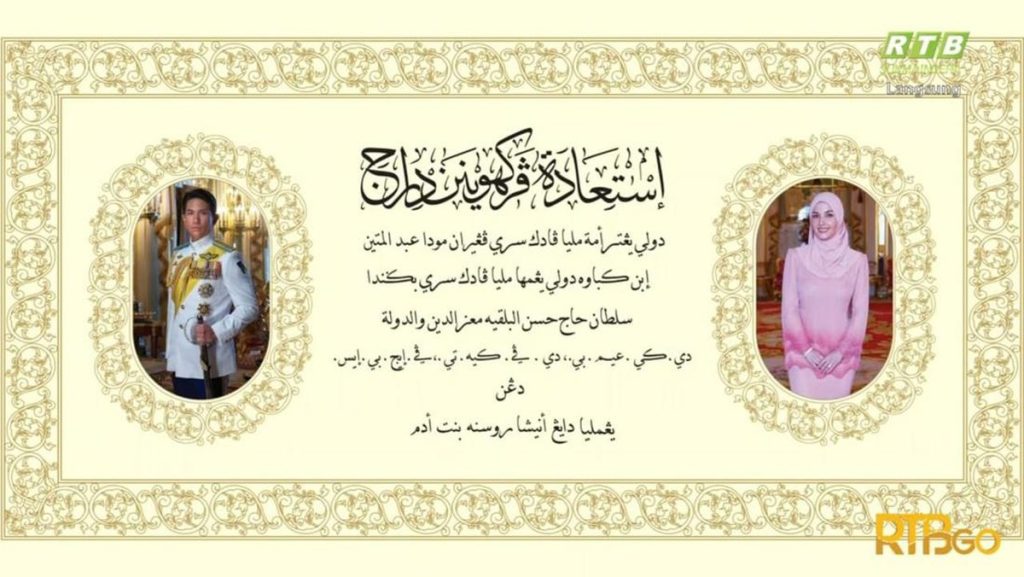 RTB
Langsung
إستعادة ڤركهوينن دراج
دولي يڠتر أمة مليا ڤادك سري ڤڠيران مودا عبد المتين
إبن كباوه دولي يڠمها مليا ڤادك سري بڬندا
سلطان حاج حسن البلقيه معز الدين والدولة
دي.كي.عيم.بي.،دي.ڤي.كيه.تي.،ڤي.إيچ.بي.إيس.
دڠن
يڠمليا دايڠ أنيشا روسنه بنت أدم
RTBGO